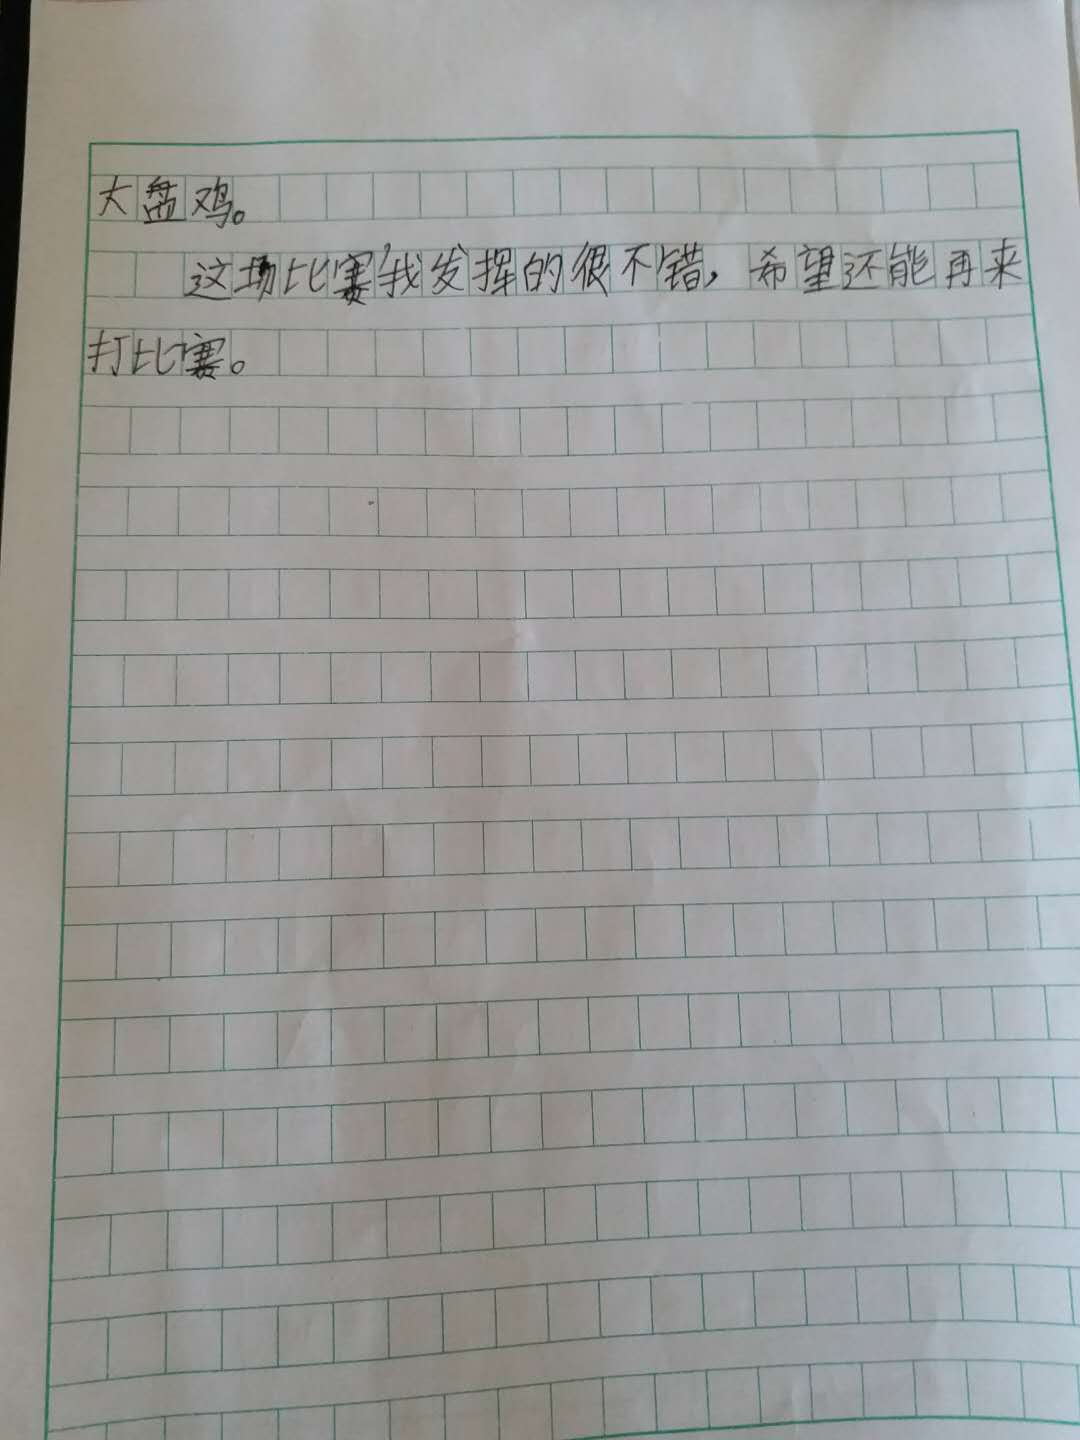 大盘鸡。
这场比赛我发挥的很不错，希望还能再来
打比赛。